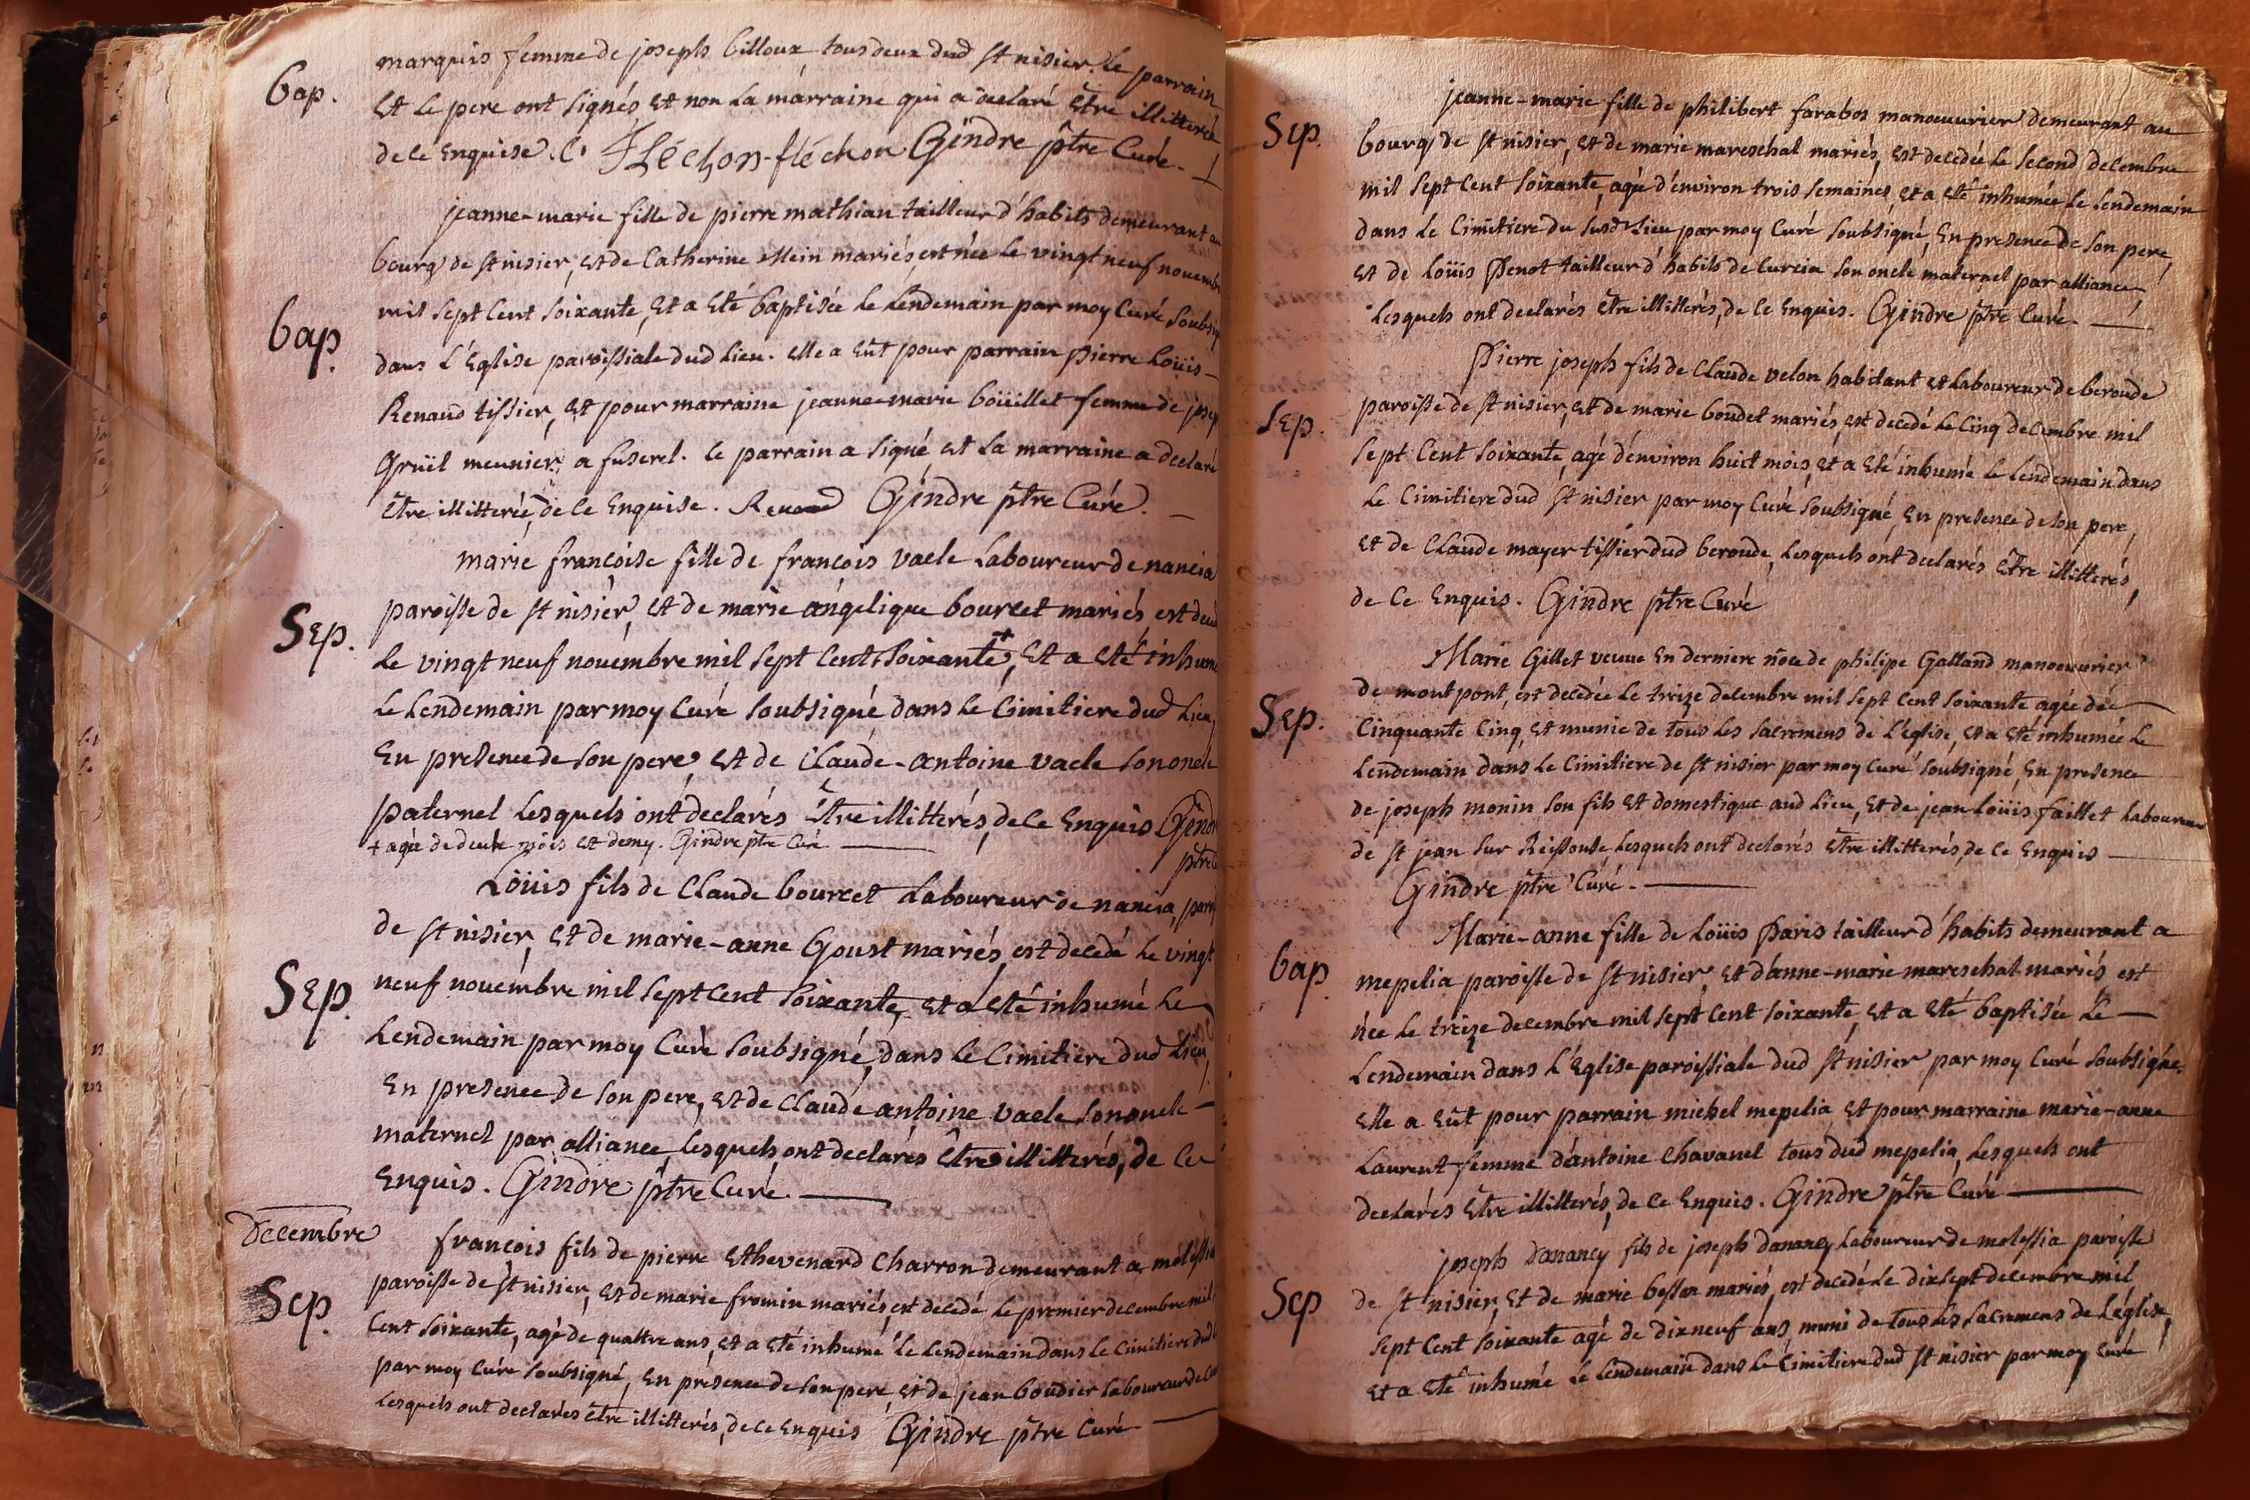 marquis femme de joseph billoux tous deux dud st nisier. Le parrain
Bap.
Et le pere ont signés et non la marraine qui a declaré être illitterée
de ce Enquise. C. Fléchon-fléchon Gindre ptre Curé.
jeanne-marie fille de pierre mathian tailleur d'habits demeurant au
bourg de st nisier, et de Catherine Mein mariés, est née le vingt neuf novemb
Bap.
mil sept cent soixante, Et a Eté baptisée le lendemain par moy Curé Soubsig
dans L'Eglise paroissiale dud lieu. elle a Eût pour parrain pierre Loüis
Renaud tissier, Et pour marraine jeanne-marie boüillet femme de josep
Gruël meunier a fuserel. le parrain a signé et la marraine a declaré
être illitterée, de ce Enquise. Renaud Gindre ptre Curé.
marie françoise fille de françois vacle Laboureur de nancia
Sep.
paroisse de st nisier, et de marie angelique bourcet mariés, est deced
Le vingt neuf novembre mil sept cent soixante +, Et a eté inhumé
Le Lendemain par moy Curé soubsigné dans le Cimitiere dud Lieu,
En presence de son pere, et de Claude-antoine vacle son oncle
paternel Lesquels ont declarés être illitterés, de ce Enquis Gindr
+ agée de deux mois et demy. Gindre ptre Curé
ptre C
Loüis fils de Claude bourcet Laboureur de nancia, parois
de st nisier, et de marie-anne Goust mariés, est decedé le vingt
Sep.
neuf novembre mil sept cent soixante, et a eté inhumé le
Lendemain par moy Curé soubsigné, dans le Cimitiere dud Lieu,
En presence de son pere, et de Claude antoine vacle son oncle
maternel par alliance, Lesquels ont declarés être illitterés, de ce
Enquis. Gindre ptre Curé.
Decembre
françois fils de pierre Ethevenard Charron demeurant a molessia
Sep.
paroisse de st nisier, et de marie fromin mariés, est decedé le premier decembre mil
Cent soixante, agé de quattre ans, et a eté inhumé le lendemain dans le Cimitiere dud
par moy curé soubsigné, En presence de son pere, et de jean boudier laboureur de
Lesquels ont declarés être illitterés, de ce Enquis Gindre ptre Curé
jeanne-marie fille de philibert farabos manoeuvrier demeurant au
Sep.
bourg de st nisier, et de marie mareschal mariés, est decedée le second decembre
mil sept cent soixante, agée d'environ trois semaines et a eté inhumée le lendemain
dans le Cimitiere du susd Lieu par moy Curé soubsigné, En presence de son pere,
et de Loüis Penot tailleur d'habits de curcia son oncle maternel par alliance,
Lesquels ont declarés être illitterés, de ce Enquis. Gindre ptre Curé.
Pierre joseph fils de Claude velon habitant et Laboureur de beroude
Sep.
paroisse de st nisier, et de marie boudet mariés, est decedé le Cinq decembre mil
sept cent soixante, agé d'environ huit mois, et a eté inhumé le lendemain dans
Le Cimitiere dud st nisier par moy Curé soubsigné, En presence de son pere,
et de Claude mayer tissier dud beroude, Lesquels ont declarés être illitterés,
de ce Enquis. Gindre ptre Curé
Marie Gillet veuve En derniere nôce de philipe Galland manoeuvrier
de montpont, est decedée le treize decembre mil sept cent soixante agée de
Sep.
Cinquante Cinq, et munie de tous les sacremens de l'église, et a eté inhumée le
Lendemain dans le Cimitiere de st nisier par moy Curé soubsigné, En presence
de joseph monin son fils et domestique aud Lieu, et de jean Loüis faillet Laboureur
de st jean sur Reissouse, Lesquels ont declarés être illitterés, de ce Enquis
Gindre ptre Curé.
Marie-anne fille de Loüis Paris tailleur d'habits demeurant a
Bap.
mepelia paroisse de st nisier, et d'anne-marie mareschal mariés, est
née le treize decembre mil sept cent soixante, et a eté baptisée le
Lendemain dans L'Eglise paroissiale dud st nisier par moy Curé soubsigné.
elle a eût pour parrain michel mepelia et pour marraine marie-anne
Laurent femme d'antoine Chavanel tous dud mepelia, Lesquels ont
declarés être illitterés, de ce Enquis. Gindre ptre Curé
joseph Danancy fils de joseph Danancy Laboureur de molessia paroisse
Sep
de st nisier, et de marie besson mariés, est decedé le dix sept decembre mil
sept cent soixante agé de dix neuf ans, muni de tous les sacremens de L'église,
et a eté inhumé le lendemain dans le Cimitiere dud st nisier par moy Curé